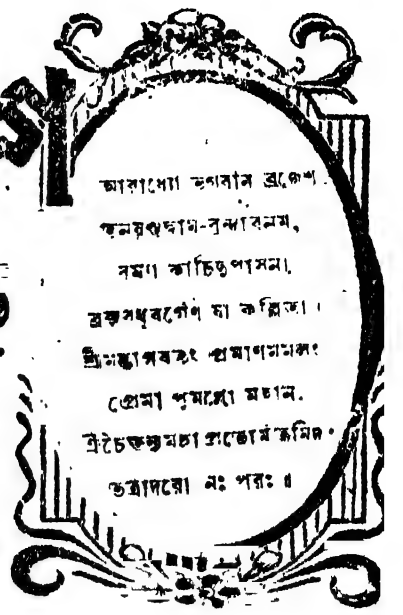 আরাধ্যো ভগবান ব্রজেশ
তনয়স্তদ্ধাম-বৃন্দাবনম,
রম্যা কাচিদুপাসনা,
ব্রজবধূবর্গেণ যা কল্পিতা।
শ্রীমদ্ভাগবতং প্রমাণমমলং
প্রেমা পুমর্থো মহান,
শ্রীচৈতন্যমহাপ্রভোর্মতমিদং
তত্রাদরো নঃ পরঃ॥